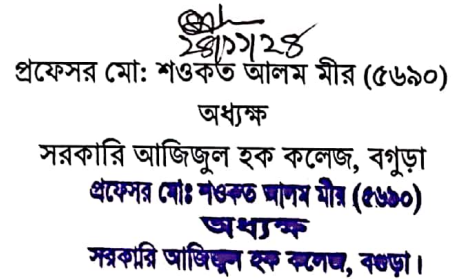 ২৪/১১/২৪
প্রফেসর মো: শওকত আলম মীর (৫৬৯০)
অধ্যক্ষ
সরকারি আজিজুল হক কলেজ, বগুড়া
প্রফেসর মোঃ শওকত আলম মীর (৫৬৯০)
অধ্যক্ষ
সরকারি আজিজুল হক কলেজ, বগুড়া।